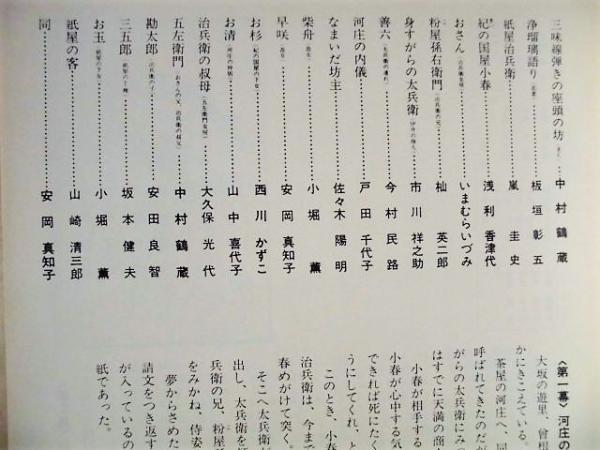 三味線弾きの座頭の坊……中村鶴蔵
浄瑠璃語り……板垣彰五
紙屋治兵衛……嵐圭史
紀の国屋小春……浅利香津代
おさん……いまむらいづみ
粉屋孫右衛門……柚英二郎
身すがらの太兵衛……市川祥之助
善六……今村民路
河庄の内儀……戸田千代子
なまいだ坊主……佐々木陽明
柴舟……小堀薫
早咲……安岡真知子
お杉（紀の国屋の下女）……西川かずこ
お清……山中喜代子
治兵衛の叔母……大久保光代
五左衛門（おさんの父、治兵衛の叔父）……中村鶴蔵
勘太郎……安田良智
三五郎……坂本健夫
お玉……小堀薫
紙屋の客……山崎清三郎
同……安岡真知子
〈第一幕〉河庄の
大坂の遊里、曾根
かにきこえている。
茶屋の河庄へ、同
呼ばれてきたのだが
がらの太兵衛にみつ
はすでに天満の商
小春が相手する
小春が心中する気
できれば死にたく
うにしてくれ、と
このとき、小春
治兵衛は、今まで
春めがけて突く。
そこへ太兵衛が
出し、太兵衛を
兵衛の兄、粉屋
をみかね、侍姿
夢からさめた
請文をつき返す
が入っているの
紙であった。